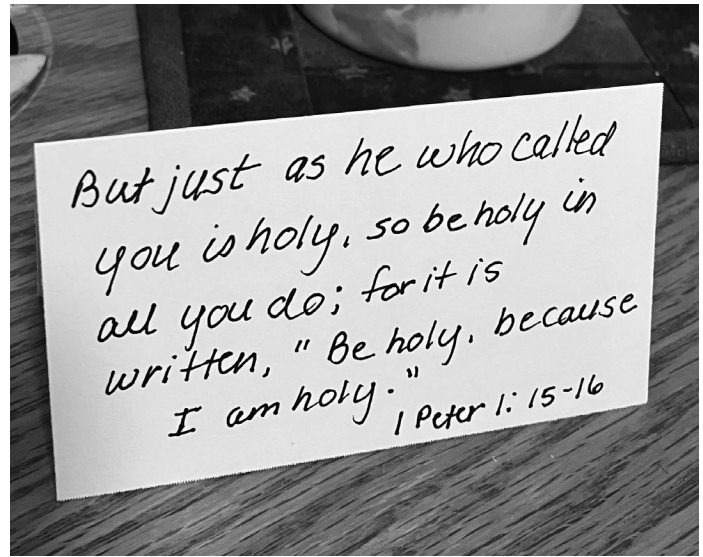 But just as he who called
you is holy, so be holy in
all you do; for it is
written, "Be holy, because
I am holy."
1 Peter 1:15-16